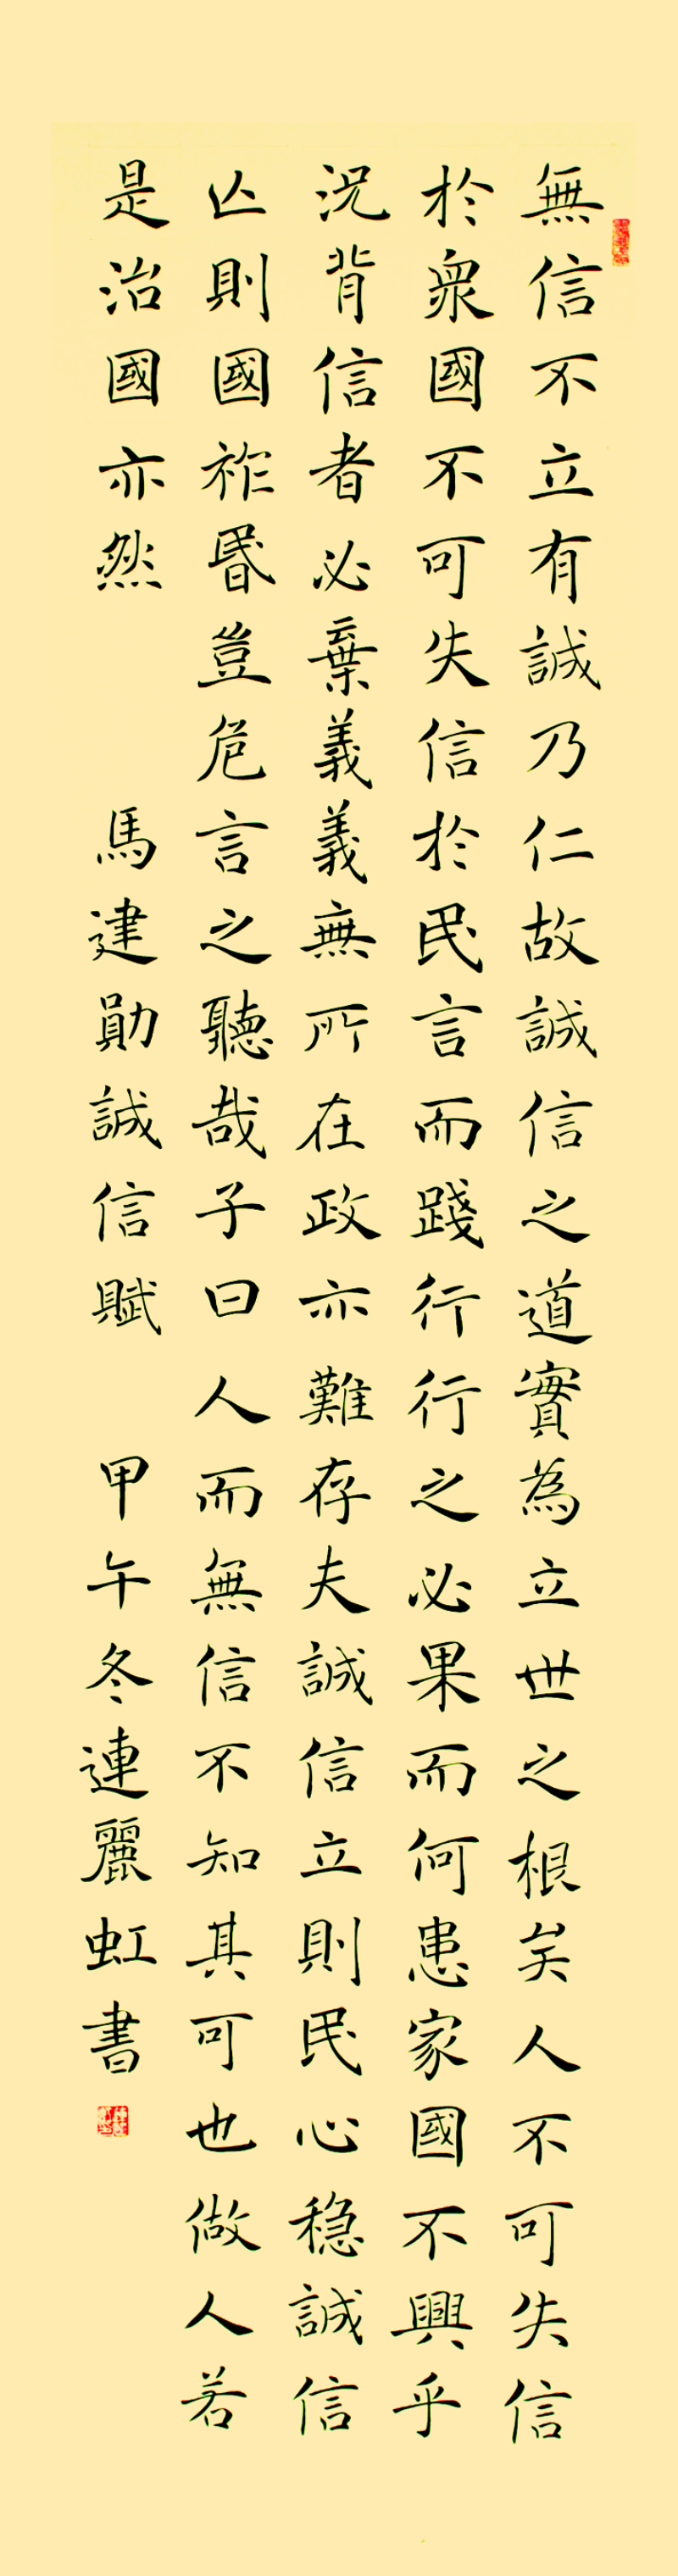 無信不立有誠乃仁故誠信之道實為立世之根矣人不可失信
於衆國不可失信於民言而踐行行之必果而何患家國不興乎
況背信者必棄義義無所在政亦難存夫誠信立則民心穩誠信
亾則國祚昬豈危言之聽哉子曰人而無信不知其可也做人若
是治國亦然 馬建勛誠信賦 甲午冬連麗虹書